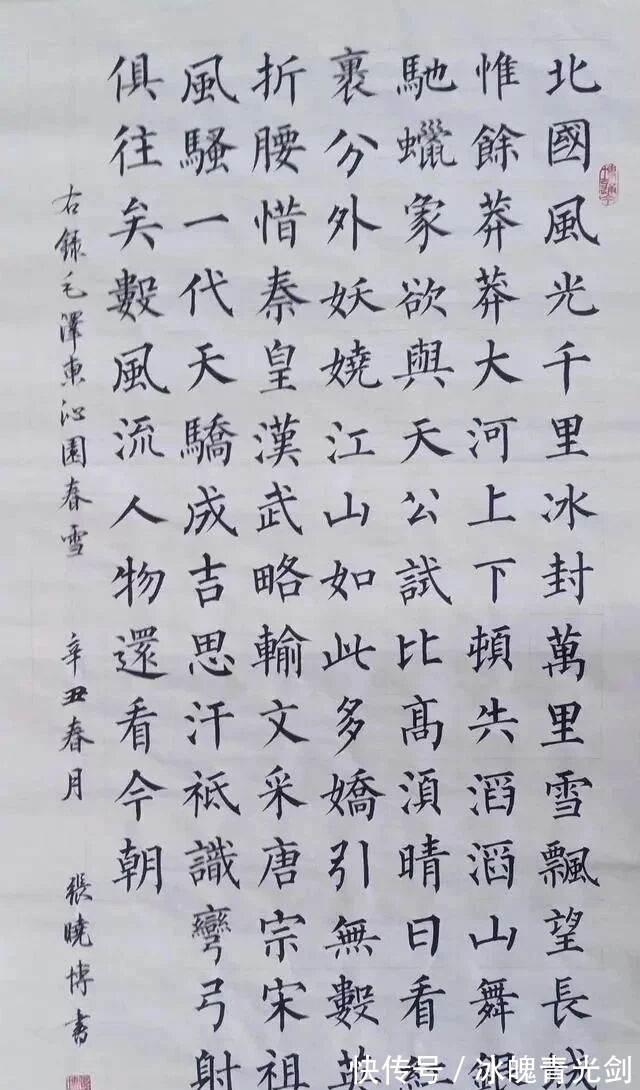 北國風光千里冰封萬里雪飄望長城
惟餘莽莽大河上下頓失滔滔山舞
馳蠟象欲與天公試比高湏晴日看紅
裹分外妖嬈江山如此多嬌引無數英
折腰惜秦皇漢武略輸文采唐宗宋祖
風騷一代天驕成吉思汗祗識彎弓射
俱往矣數風流人物還看今朝
右錄毛澤東沁園春雪 辛丑春月 張曉博書
快传号／冰魄青光剑